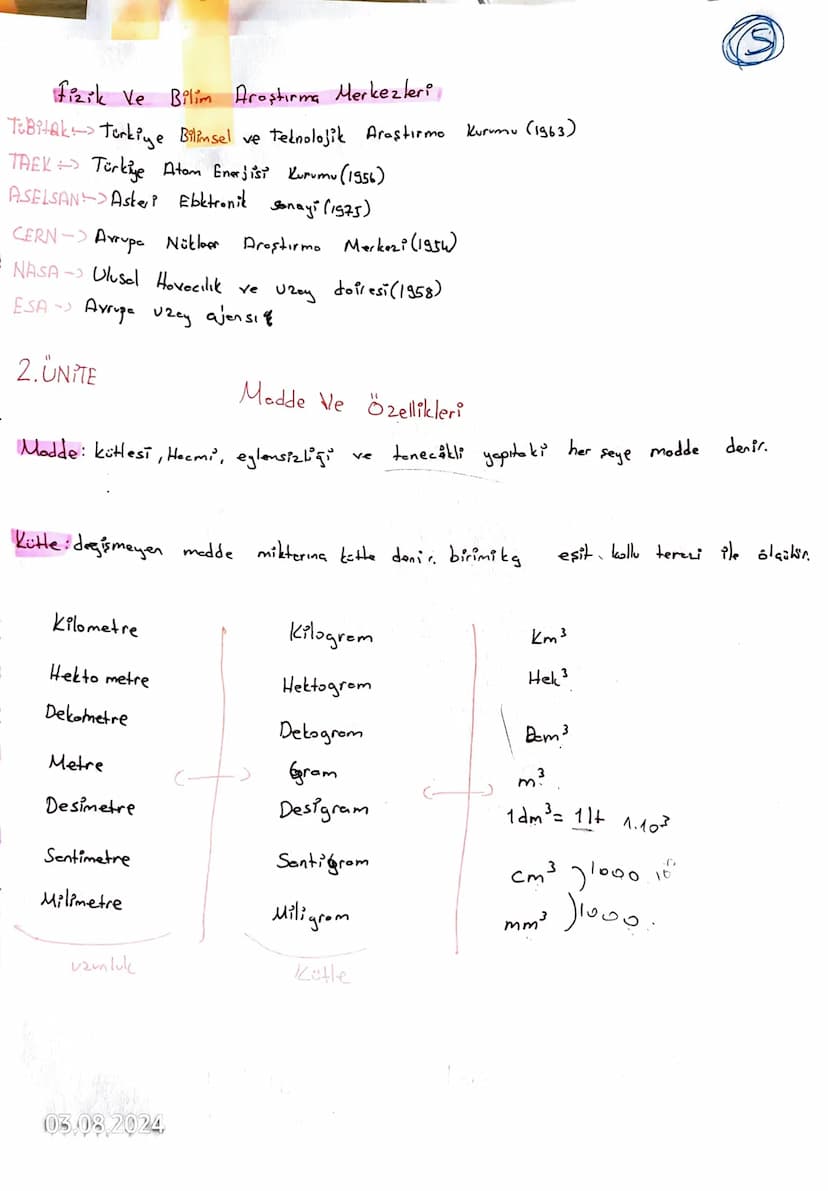 5
Fizik Ve Bilim Araştırma Merkezleri
TÜBİTAK → Türkiye Bilimsel ve Teknolojik Araştırma Kurumu (1963)
TAEK → Türkiye Atom Enerjisi Kurumu (1956)
ASELSAN → Askeri Elektronik Sanayi (1975)
CERN → Avrupa Nükleer Araştırma Merkezi (1954)
NASA → Ulusal Havacılık ve Uzay dairesi (1958)
ESA → Avrupa Uzay ajansı
2.ÜNİTE
Madde Ve Özellikleri
Madde: kütlesi, Hacmi, eylemsizliği ve tanecikli yapıtaki her şeye madde denir.
Kütle: değişmeyen madde miktarına kütle denir. birimi kg eşit kollu terazi ile ölçülür.
Kilometre Kilogram Km³
Hekto metre Hektogram Hek³
Dekametre Dekagram Dam³
Metre Gram m³
Desimetre Desigram 1dm³ = 1lt 1.10³
Santimetre Santigram cm³ )1000
Milimetre Miligram mm³ )1000
uzunluk Kütle
03.08.2024